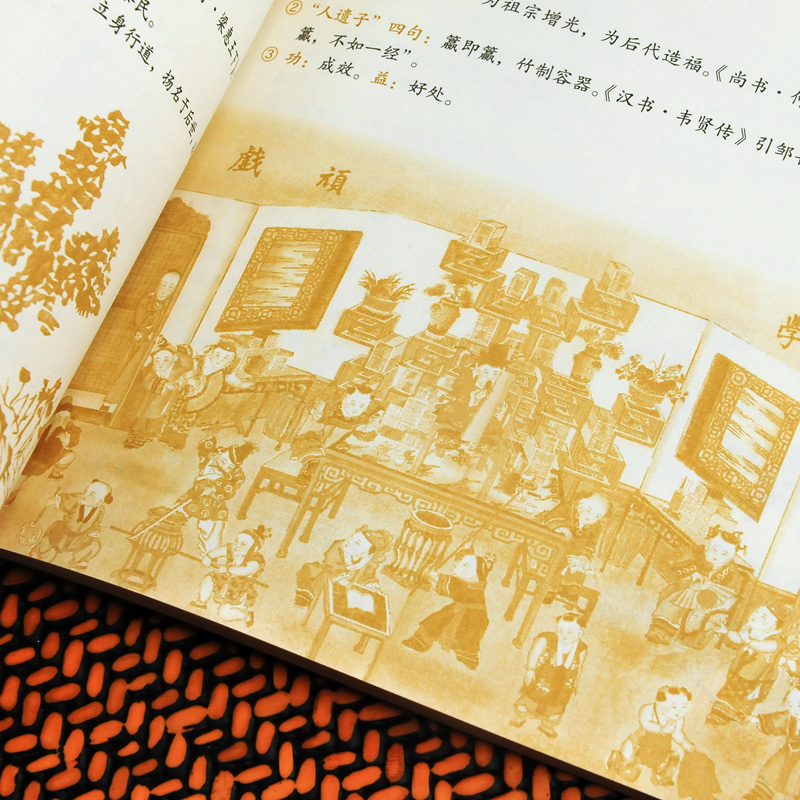 ·梁惠王
民。
立身行道，扬名于后世，
为祖宗增光，为后代造福。《尚书·
② “人遗子”四句：籝即籝，竹制容器。《汉书·韦贤传》引邹
籝，不如一经”。
③ 功：成效。益：好处。
戲 頑
學